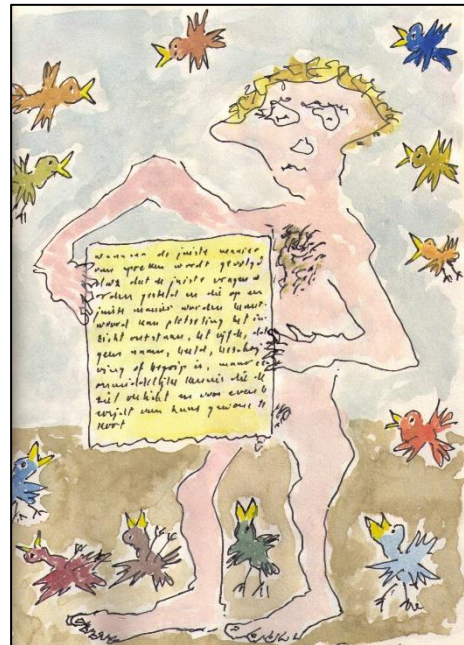 wanneer de juiste manier
van spreken wordt gevolgd
dat de juiste vragen w
orden gesteld en die op een
juiste manier worden beant
woord kan plotseling het in
zicht ontstaan, het vijfde, dat
geen naam, beeld, beschrij
ving of begrip is, maar een
onmiddellijke kennis die de
ziel verlicht en voor eeuwig b
evrijdt van haar gewone